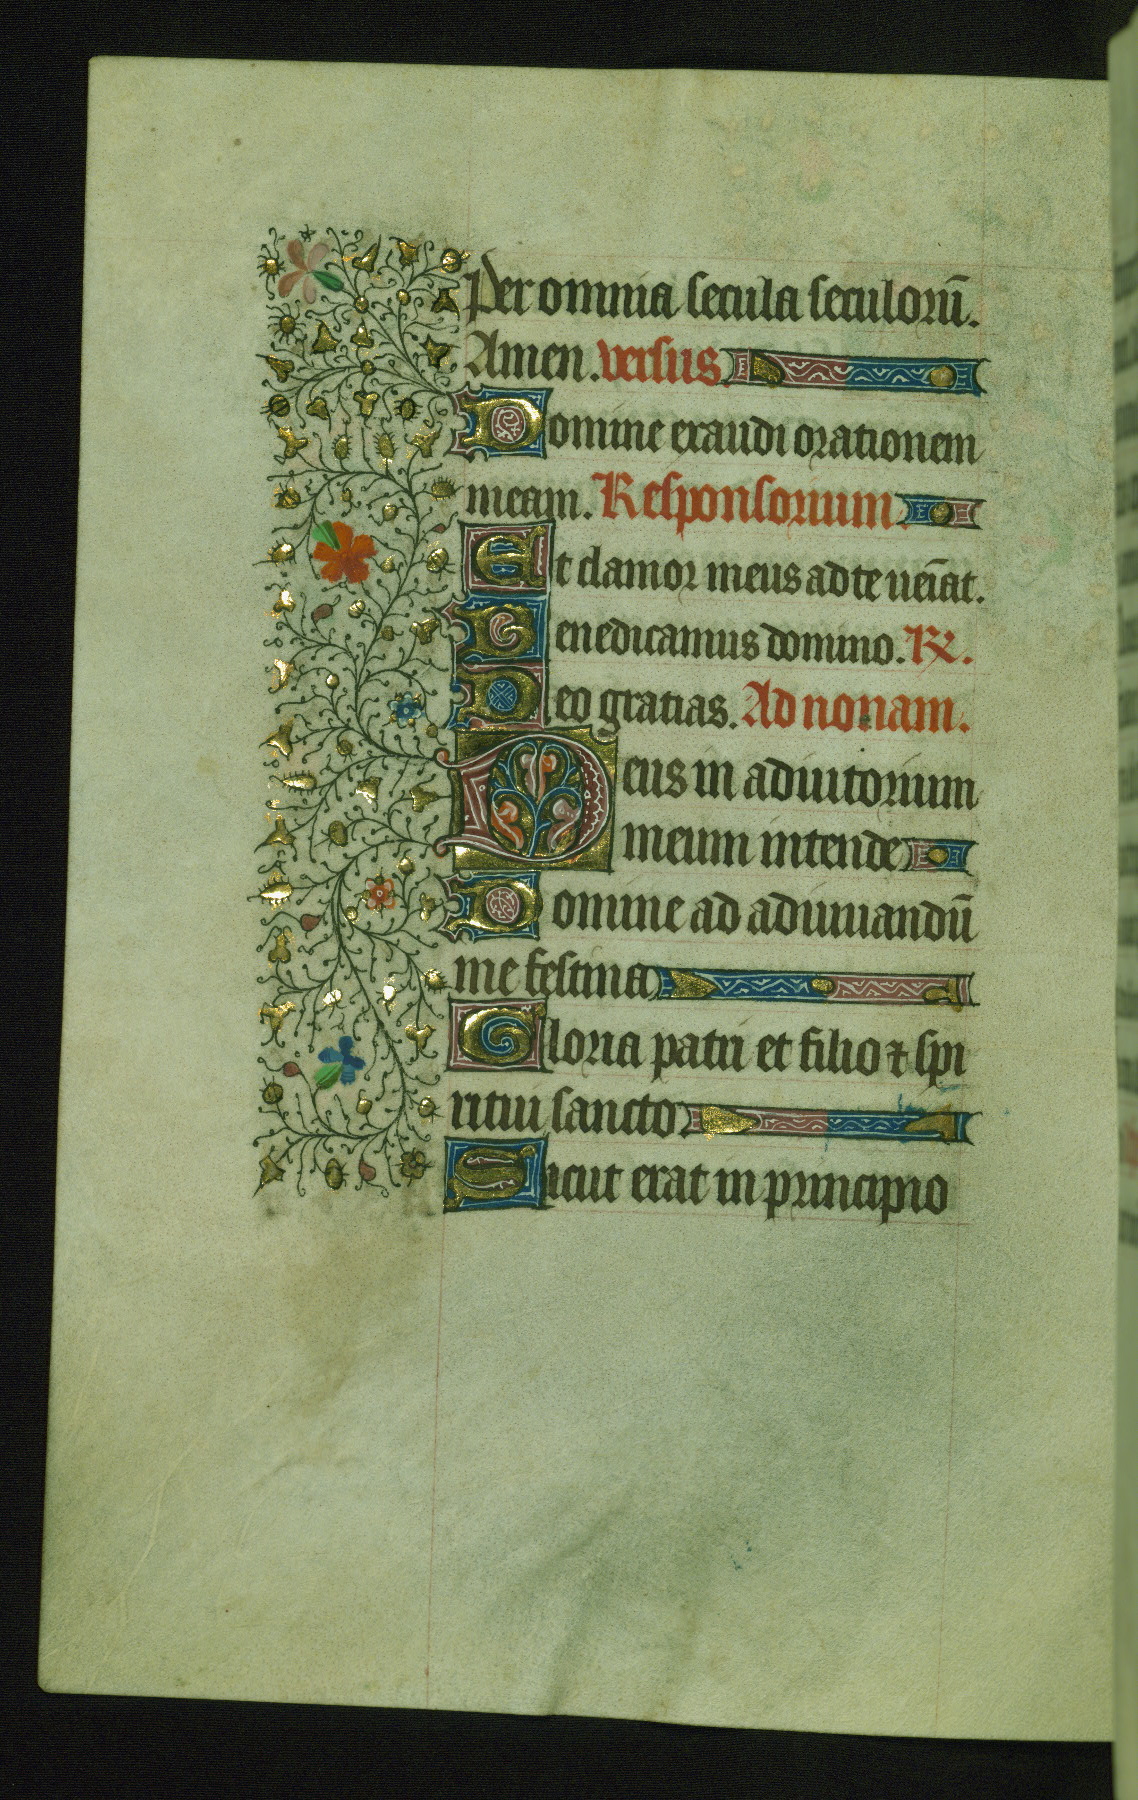 Per omnia secula seculorū.
Amen. versus.
Domine exaudi orationem
meam. Responsorium
Et clamor meus ad te ueīat.
Benedicamus domino. ℟.
Deo gratias. Ad nonam.
Deus in adiutorium
meum intende
Domine ad adiuuandū
me festina
Gloria patri et filio ⁊ spi
ritui sancto
Sicut erat in principio